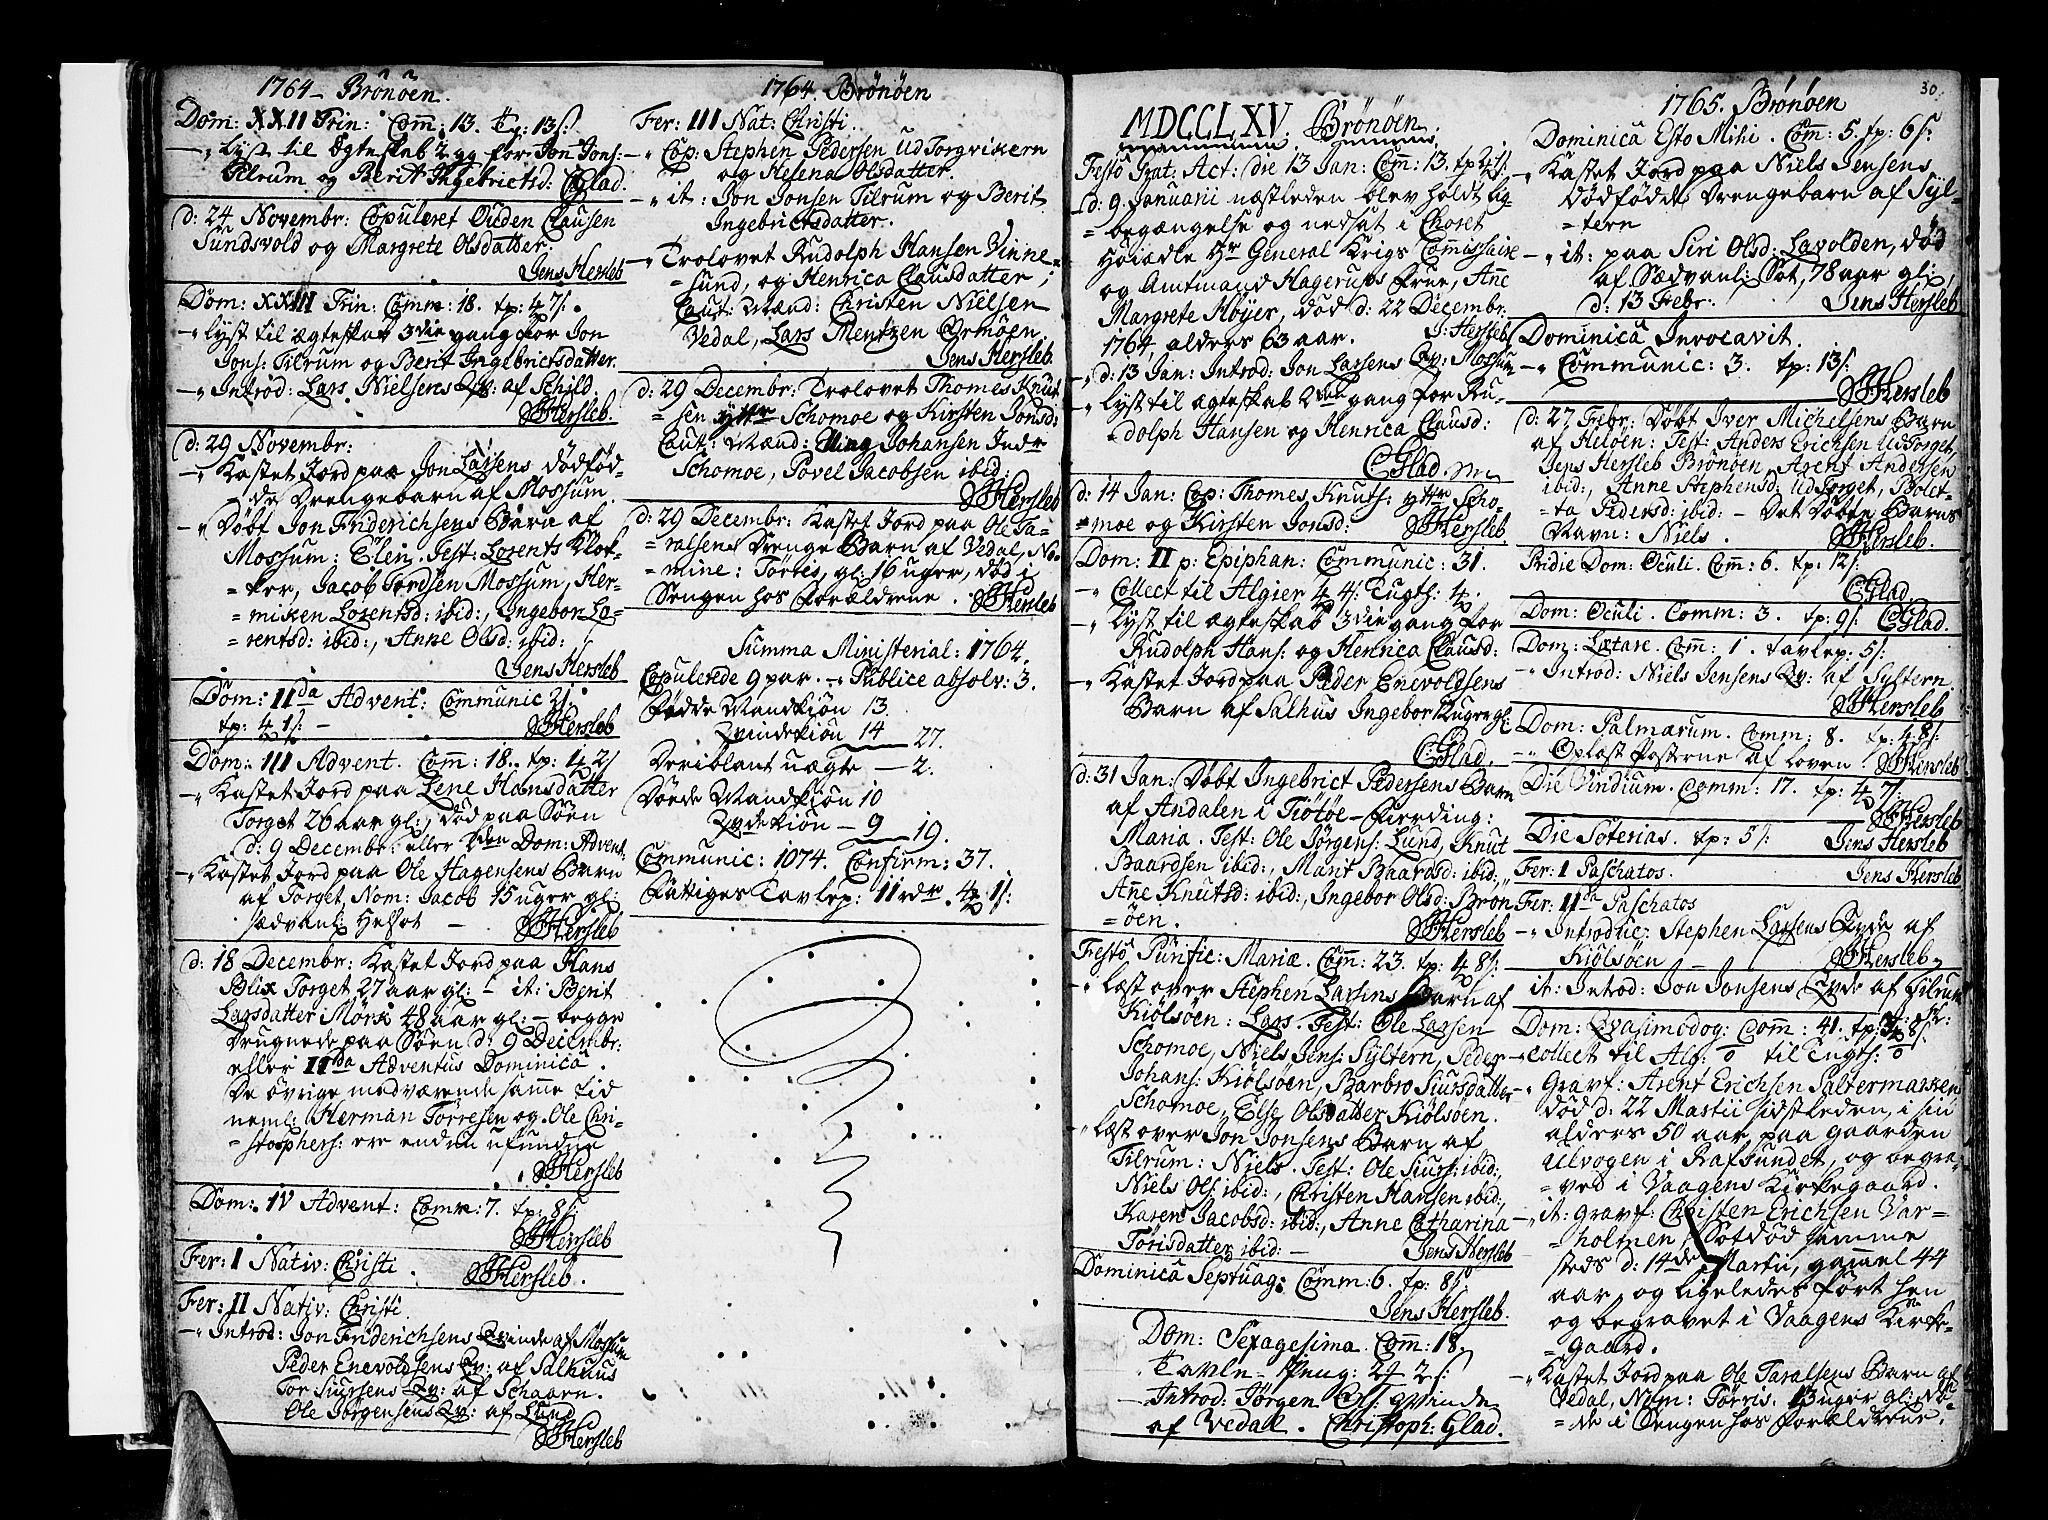 1764 - Brönöen.
Dom: XXII Trin: Com̅: 13. tp: 13 ß:
-„ Lyst til Ægteskab 2 gg for Jon Jons:
Tilrum og Berit Ingebrictsd: CGlad.
d: 24 Novembr: Copuleret Ouden Clausen
Sundsvold og Margrete Olsdatter.
Jens Hersleb
Dom: XXIII Trin: Comm: 18. tp: 4 7 ß.
-„ lyst til ægteskab 3die gang for Jon
Jons: Tilrum og Berit Ingebrictsdatter.
-„ Introd: Lars Nielsens Qv: af Schild
JHersleb.
d: 29 Novembr:
-„ Kastet Jord paa Jon Larsens dödföd-
de Drengebarn af Mossum.
-„ Döbt Jon Friderichsens Barn af
Mossum: Elen. Test: Lorents Klok-
=ker, Jacob Tordsen Mossum, Her-
=miken Lorentsd: ibid:, Ingebor Lo-
=rentsd: ibid:, Anne Olsd: ibid:
Jens Hersleb
Dom: IIda Advent: Communic 21.
tp: 4 1 ß: - JHersleb
Dom: III Advent. Com̅: 18. tp: 1 2 ß
-„ Kastet Jord paa Lene Hansdatter
Torget 26 aar gl:, död paa Söen
d: 9 December: eller IIden Dom: Advent:
-„ Kastet Jord paa Ole Hagensens Barn
af Torget, Nom: Jacob 15 uger gl:
sædvanl: Helsot - JHersleb
d: 18 Decembr: Kastet Jord paa Hans
Blix Torget 27 aar gl: - it: Berit
Larsdatter Mörk 48 aar gl: - begge
Drugnede paa Söen d: 9 Decembr:
eller IIda Adventus Dominica.
De övrige medværende samme tid
neml: Herman Torresen og Ole Chri-
=stophers: ere endnu ufundne
JHersleb
Dom: IV Advent: Comm: 7. tp: 8 ß:
JHersleb
Fer: I Nativ: Christi. JHersleb.
Fer: II Nativ: Christi
-„ Introd: Jon Friderichsens Qvinde af Mossum
Peder Enevoldsens Qv: af Salhuus
Tor Siursens Qv: af Schaarn.
Ole Jörgensens Qv: af Lund
JHersleb
1764. Brönöen
Fer: III Nat: Christi.
-„ Cop: Stephen Pedersen Ud Torgvikern
og Helena Olsdatter.
-„ it: Jon Jonsen Tilrum og Berit
Ingebrictsdatter.
-„ Trolovet Rudolph Hansen Vinne=
=sund, og Henrica Clausdatter;
Caut: Mænd: Christen Nielsen
Vedal, Lars Mentzen Ormöen.
Jens Hersleb
d: 29 Decembr: Trolovet Thomes Knut
=sen yttre Schomoe og Kirsten Jonsd:
Caut: Mænd: Johansen Indr
Schomoe, Povel Jacobsen ibid:
JHersleb
d: 29 Decembr: Kastet Jord paa Ole Ta=
=ralsens Drenge Barn af Vedal, No=
=mine: Torris, gl: 16 uger, död i
Sengen hos Forældrene. JHersleb
Summa Ministerial: 1764.
Copulerede 9 par. -„ Publice absolv: 3.
Födde Mandkiön 13.
Qvindekiön 14 - 27.
Deriblant uægte - 2.
Döede Mandkiön 10
Qvdekiön - 9 - 19.
Communic: 1074. Confirm: 37.
Fattiges Tavlep: 11 rdr. 4 1 ß:
MDCCLXV. Brönöen.
Festo Grat: Act: die 13 Jan: Com̅: 13. tp 2 ß:
d: 9 Januarii næstleden blev holdt Lig
=begængelse og nedsat i Choret
Höiædle Hr General Krigs Commissaire
og Amtmand Hagerups Frue, An̅e
Margrete Höyer, död d: 22 Decembr:
1764, alders 63 aar. J: Hersleb
-„ d: 13 Jan: Introd: Jon Larsens Qv: Mossum
-„ lyst til ægteskab 2den gang for Ru-
=dolph Hansen og Henrica Clausd:
CGlad.
d: 14 Jan: Cop: Thomes Knuts: yttr Scho-
=moe og Kirsten Jonsd: JHersleb
Dom: II p: Epiphan: Communic: 31.
-„ Collect til Algier 4 4: Tugth: 4.
-„ lyst til ægteskab 3die gang for
Rudolph Hans: og Henrica Clausd:
-„ Kastet Jord paa Peder Enevoldsens
Barn af Salhus Ingebor 12 uger gl:
CGlad.
d: 31 Jan: Döbt Ingebrict Pedersens Barn
af Andalen i Tiötöe-Fierding:
Maria. Test: Ole Jörgens: Lund, Knut
Baardsen ibid:, Marit Baardsd: ibid:,
An̅e Knutsd: ibid:, Ingebor Olsd: Brön
=öen. JHersleb
Festo Purific: Mariæ. Com̅: 23. tp: 1 8 ß:
-„ Læst over Stephen Larsens Barn af
Kiölsöen: Lars. Test: Ole Larsen
Schomoe, Niels Jens: Syltern, Peder
Johans: Kiölsöen, Barbro Siursdatter
Schomoe, Else Olsdatter Kiölsöen.
-„ Læst over Jon Jonsens Barn af
Tilrum: Niels. Test: Ole Siurs: ibid:,
Niels Ols: ibid:, Christen Hansen ibid:,
Karen Jacobsd: ibid:, Anne Catharina
Torisdatter ibid: - Jens Hersleb
Dominica Septuag: Comm: 6. tp: 8 ß
Jens Hersleb.
Dom: Sexagesima. Com̅: 18.
Tavle-Peng: 2 2 ß:
Introd: Jörgen Ols: Qvinde
af Vedal. Christoph: Glad.
30.
1765. Brönöen
Dominica Esto Mihi. Com̅: 5. tp: 6 ß:
-„ Kastet Jord paa Niels Jensens
dödfödde Drengebarn af Syl-
=tern
-„ it: paa Siri Olsd: Lavolden, död
af Sædvanl: Sot, 78 aar gl:
d: 13 Febr: Jens Hersleb
Dominica Invocavit.
-„ Communic: 3. tp: 13 ß:
JHersleb
d: 27 Febr: Döbt Iver Michelsens Barn
af Helöen: Test: Anders Erichsen Ud Torget,
Jens Hersleb Brönöen, Arent Andersen
ibid:, Anne Stephensd: Ud Torget, Bolet-
ta Pedersd: ibid: - Det Döbte Barns
Navn: Niels. JHersleb.
Pridie Dom: Oculi. Com̅: 6. tp: 12 ß:
CGlad
Dom: Oculi. Comm: 3. tp: 9 ß: CGlad.
Dom: Lætare. Com̅: 1. tavlep: 5 ß:
-„ Introd: Niels Jensens Qv: af Syltern
JHersleb
Dom: Palmarum. Comm: 8. tp: 4 8 ß:
-„ Oplæst Posterne af Loven. JHersleb
Die Viridium. Comm: 17. tp: 4 7 ß:
JHersleb
Die Soterias. tp: 5 ß: Jens Hersleb
Fer: I Paschatos. Jens Hersleb
Fer: IIda Paschatos
-„ Introduc: Stephen Larsens Qvde af
Kiölsöen - JHersleb
it: Introd: Jon Jonsens Qvde af Tilrum
Dom: Qvasimodog: Com̅: 41. tp: 3 8 ß:
-„ Collect til Alg: 0 til Tugth: 0
-„ Gravf: Arent Erichsen Saltermarken
död d: 22 Martii sidstleden, i sin
alders 50 aar, paa gaarden
Ulvogen i Rafsundet, og begra-
=ved i Vaagens Kirkegaard.
-„ it: gravf: Christen Erichsen Var-
=holmen, Sotdöd samme
steds d: 14de Martii, gammel 44
aar, og ligeledes fört hen
og begravet i Vaagens Kirke-
=gaard.
-„ Kastet Jord paa Ole Taralsens Barn af
Vedal, Nom: Törris. 13 uger gl:
=de i Sengen hos Forældrene.